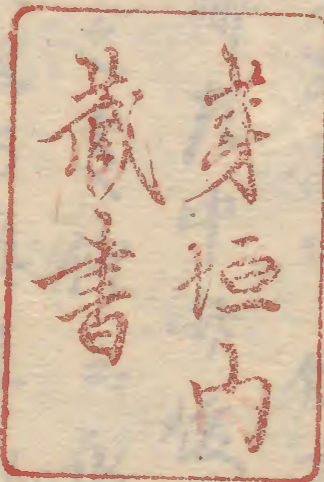 垣内
藏書